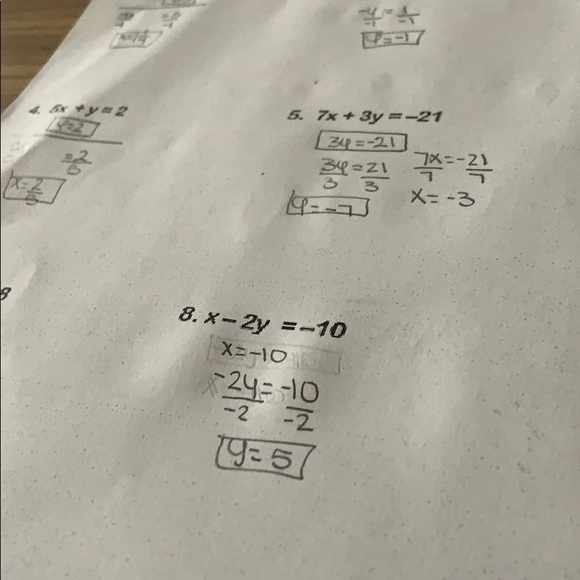 y = -1
4. 5x + y = 2
y = 2
= 2/5
x = 2/5
5. 7x + 3y = -21
3y = -21
3y/3 = 21/3
7x/7 = -21/7
y = -7
x = -3
8. x - 2y = -10
x = -10
-2y/-2 = -10/-2
y = 5